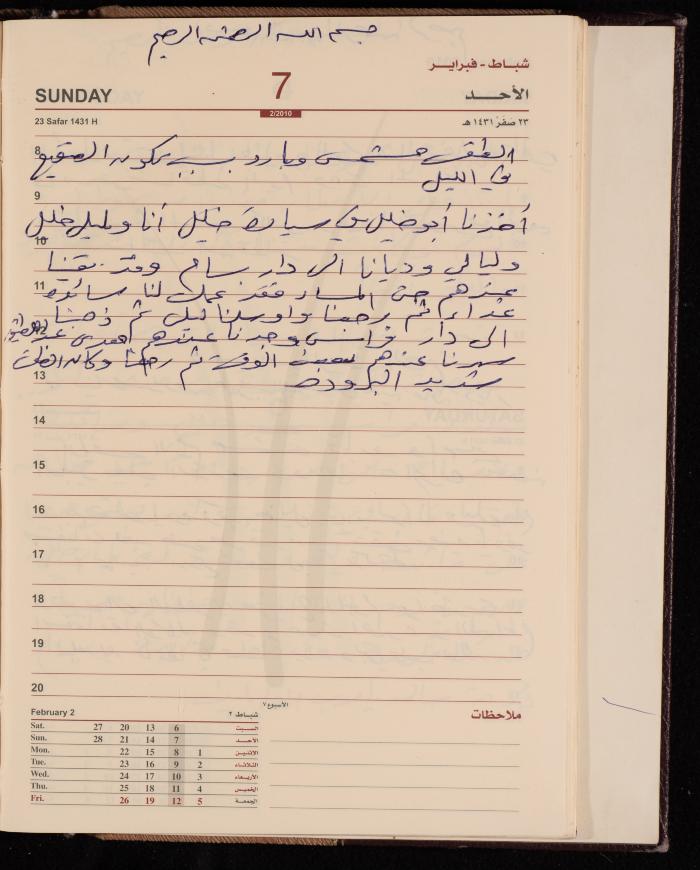 بسم الله الرحمن الرحيم
شباط - فبراير
SUNDAY 7 الأحد
2/2010
23 Safar 1431 H ٢٣ صفر ١٤٣١ هـ
8 الطقس مشمس وبارد بسبب تكون الصقيع
في الليل
9
أخذنا أبو خليل في سيارة خليل أنا و خليل
10
وليالي وديانا الى دار سام وقد بقينا
11 عندهم حتى المساء فقد عملت لنا
غداء ثم رجعنا ثم ذهبنا
12 الى دار فرانسس وجدنا عندهم
سهرنا عندهم ثم رجعنا وكان الطقس
13 شديد البرودة
14
15
16
17
18
19
20
February 2 شباط ٢
الأسبوع ٧
ملاحظات
Sat. 27 20 13 6 السبت
Sun. 28 21 14 7 الأحد
Mon. 22 15 8 1 الاثنين
Tue. 23 16 9 2 الثلاثاء
Wed. 24 17 10 3 الأربعاء
Thu. 25 18 11 4 الخميس
Fri. 26 19 12 5 الجمعة